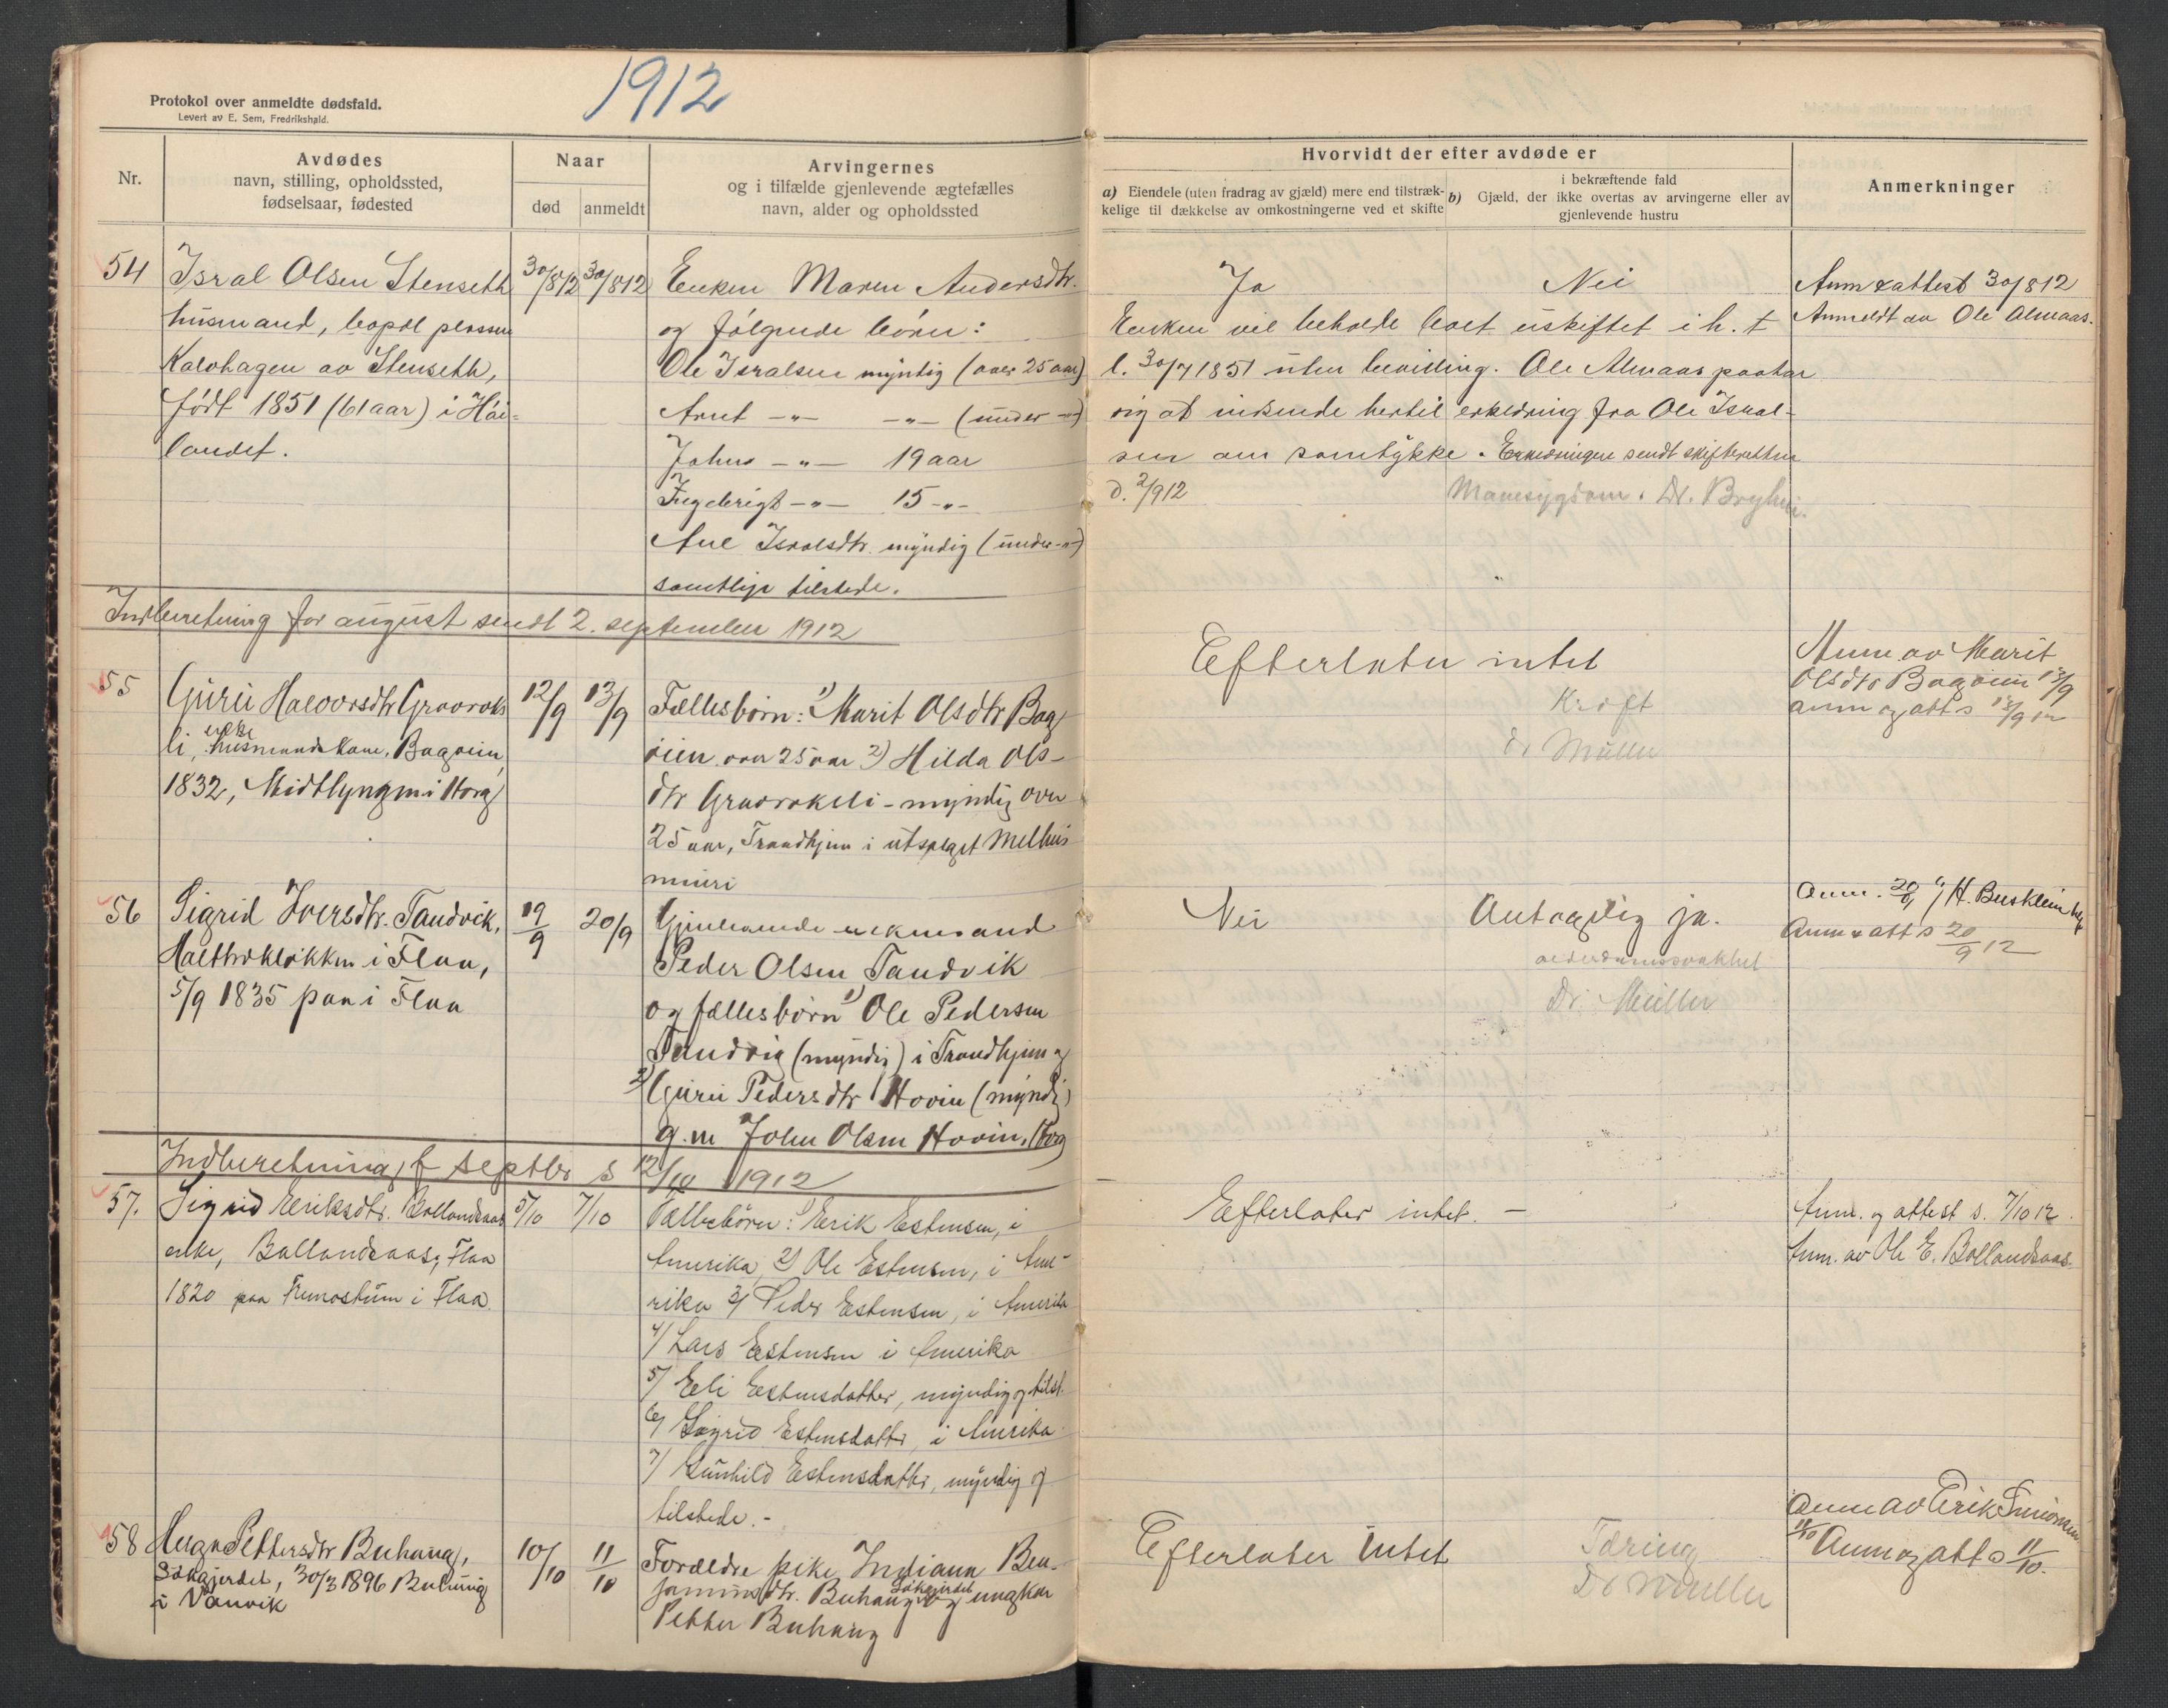 1912
Protokol over anmeldte dødsfald.
Levert av E. Sem, Fredrikshald.
Nr.
Avdødes
navn, stilling, opholdssted,
fødselsaar, fødested
Naar
død
anmeldt
Arvingernes
og i tilfælde gjenlevende ægtefælles
navn, alder og opholdssted
Hvorvidt der efter avdøde er
a) Eiendele (uten fradrag av gjæld) mere end tilstræk-
kelige til dækkelse av omkostningerne ved et skifte
i bekræftende fald
b) Gjæld, der ikke overtas av arvingerne eller av
gjenlevende hustru
Anmerkninger
54
Isral Olsen Stenseth
husmand, bopæl plassen
Kalvhagen av Stenseth,
født 1851 (61 aar) i Høi-
landet.
30/8 12
30/8 12
Enken Maren Andersdtr.
og følgende børn:
Ole Isralsen myndig (over 25 aar)
Arnt -"- -"- (under -"-)
Johns -"- 19 aar
Ingebrigt -"- 15 -"-
Ane Isralsdtr. myndig (under -"-)
samtlige tilstede.
Ja
Nei
Enken vil beholde boet uskiftet i h. t
l. 30/7 1851 uten bevilling. Ole Almaas paatar
sig at indsende hertil erklæring fra Ole Isral-
sen om samtykke. Erklæringen sendt skifteretten
d. 2/9 12
Mavesygdom. Dr. Bryhni.
Anm & attest 30/8 12
Anmeldt av Ole Almaas.
Indberetning for august sendt 2. september 1912
55
Guru Halvorsdtr Graarok-
li, enke husmandskone, Bagøien,
1832, Midtlyngen i Horg
12/9
13/9
Fællesbørn: 1) Marit Olsdtr Bag-
øien over 25 aar 2) Hilda Ols-
dtr Graarokli - myndig over
25 aar, Trondhjem i utsalget Melhus
mieri
Efterlater intet
Kræft
Dr Müller
Anm av Marit
Olsdtr Bagøien 13/9
anm og att s 13/9 12
56
Sigrid Iversdtr. Tandvik,
Haltbrekløkken i Flaa,
5/9 1835 paa i Flaa
19/9
20/9
Gjenlevende enkemand
Peder Olsen Tandvik
og fællesbørn 1) Ole Pedersen
Tandvig (myndig) i Trondhjem og
2) Guru Pedersdtr Hovin (myndig)
g. m John Olsen Hovin, Horg
Nei
Antagelig ja.
alderdomssvakhet
Dr. Müller
Anm. 20/9 H. Busklein
Anm & att s 20/9 12
Indberetning f septbr s 12/10 1912
57.
Sigrid Eriksdtr. Bollandsaas
enke, Ballandsaas, Flaa
1820 paa Trenostuen i Flaa.
5/10
7/10
Fællesbørn: 1) Erik Estensen, i
Amerika, 2) Ole Estensen, i Ame-
rika 3/ Peder Estensen, i Amerika
4/ Lars Estensen i Amerika
5/ Eli Estensdatter, myndig og tilst.
6/ Sigrid Estensdatter, i Amerika.
7/ Gunhild Estensdatter, myndig og
tilstede. -
Efterlater intet. -
Anm. og attest s. 7/10 12.
Anm. av Ole E. Bollandsaas.
58
Magna Pettersdtr Buhaug,
Søkgjerdet, 30/3 1896 Buhaug
i Vanvik
10/10
11/10
Forældre pike Indiana Ben-
jaminsdtr. Buhaug Søkgjerdet og ungkar
Petter Buhaug
Efterlater intet
Tæring
Dr Müller
Anm av Erik
11/10 Anm og att s 11/10.